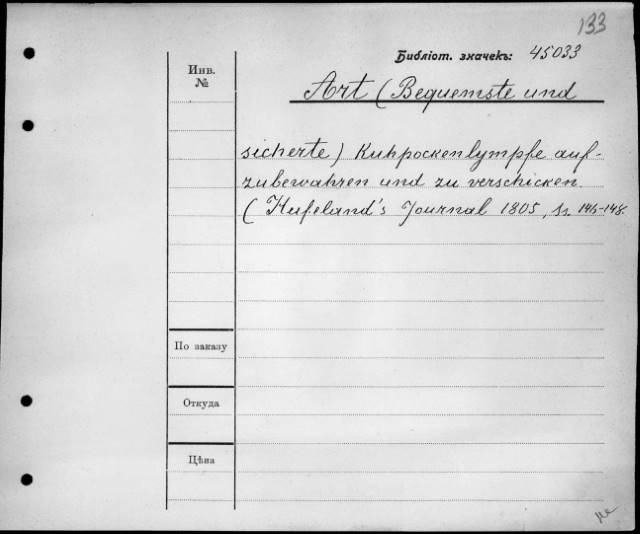 133
Библiот. значекъ: 45033
Инв.
№
Art (Bequemste und
sicherte) Kuhpockenlympfe auf-
zubewahren und zu verschicken.
(Hufeland's Journal 1805, 146-148.
По заказу
Откуда
Цѣна